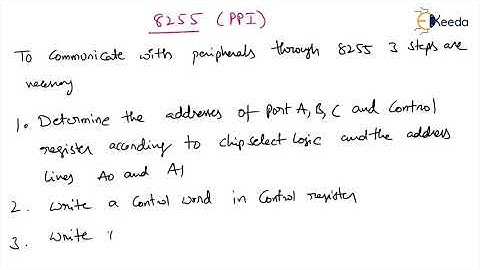 8255 (PPI)
Ekeeda
To communicate with peripherals through 8255 3 steps are
necessary
1. Determine the addresses of Port A, B, C and Control
register according to chip select Logic and the address
lines A0 and A1
2. Write a Control word in Control register
3. Write